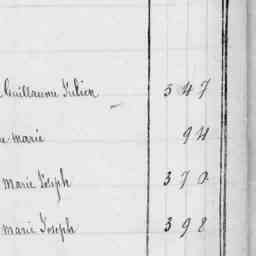 Guillaume Julien 547
marie 94
marie Joseph 370
marie Joseph 398